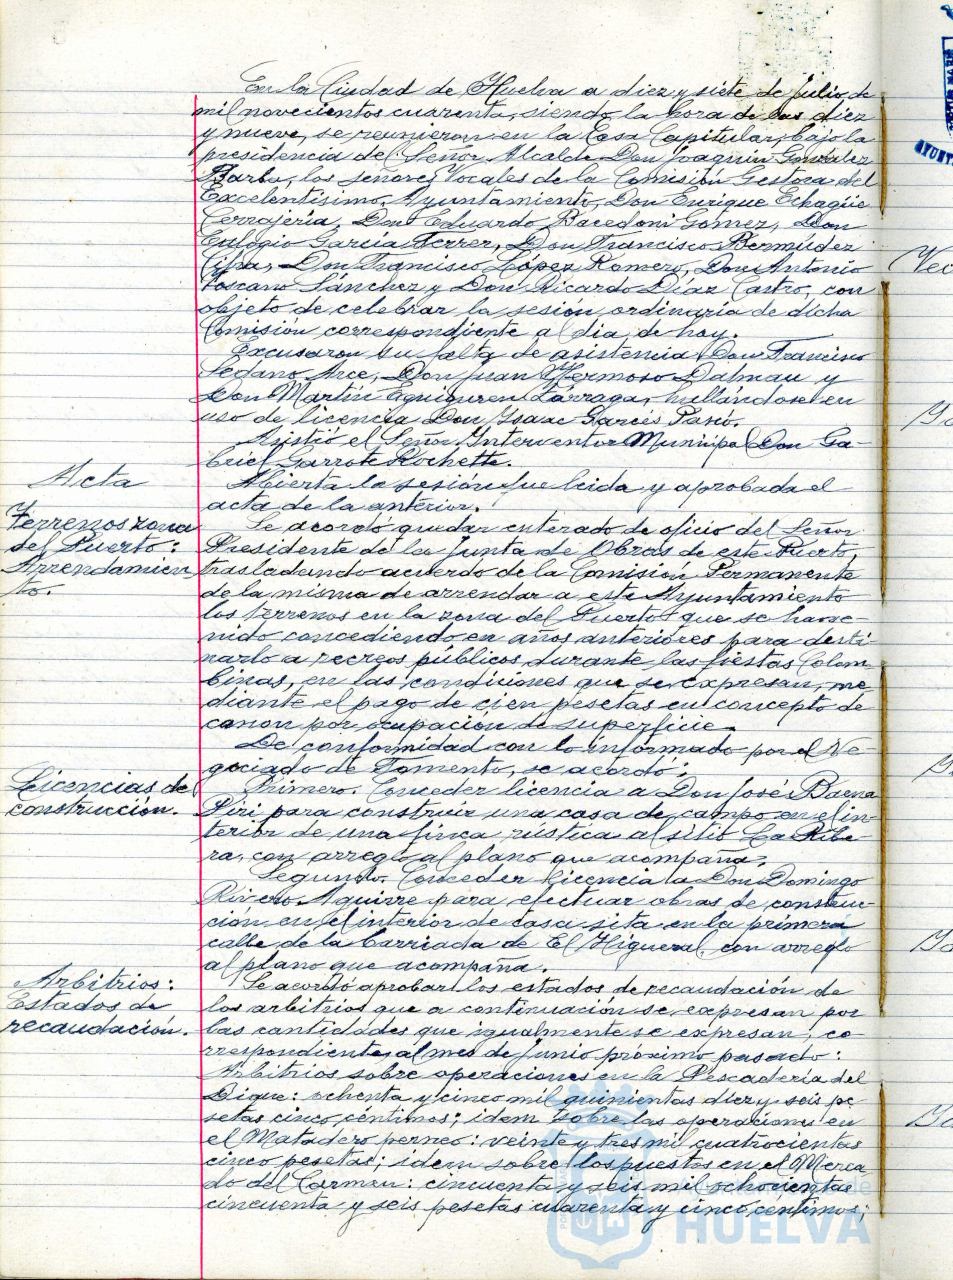 En la Ciudad de Huelva a diez y siete de julio de
mil novecientos cuarenta, siendo la hora de las diez
y nueve, se reunieron en la Casa Capitular, bajo la
presidencia del Señor Alcalde Don Joaquin González
Barba, los señores Vocales de la Comisión Gestora del
Excelentisimo Ayuntamiento, Don Enrique Echagüe
Cerrajería, Don Eduardo Bacedoni Gómez, Don
Eulogio García Ferrer, Don Francisco Bermúdez
Don Francisco López Romero, Don Antonio
Toscano Sánchez y Don Ricardo Díaz Castro, con
objeto de celebrar la sesión ordinaria de dicha
Comisión correspondiente al dia de hoy.
Excusaron su falta de asistencia Don Francisco
Sedano Arce, Don Juan Hermoso Dalmau y
Don Martín Eguiguren Larraga, hallandose en
uso de licencia Don Ysaac Garcés
Asistió el Señor Interventor Municipal Don Ga-
briel Garrote Rochette.
Acta
Abierta la sesión fue leida y aprobada el
acta de la anterior.
Terrenos zona
del Puerto:
Arrendamien
to.
Se acordó quedar enterado de oficio del Señor
Presidente de la Junta de Obras de este Puerto,
trasladando acuerdo de la Comisión Permanente
de la misma de arrendar a este Ayuntamiento
los terrenos en la zona del Puerto que se han ve-
nido concediendo en años anteriores para desti-
narlo a recreos públicos durante las fiestas Colom-
binas, en las condiciones que se expresan, me-
diante el pago de cien pesetas en concepto de
canon por ocupación de superficie.
De conformidad con lo informado por el Ne-
gociado de Fomento, se acordó:
Licencias de
construcción.
Primero. Conceder licencia a Don José Baena
Piri para construir una casa de campo en el in-
terior de una finca rústica al sitio La Ribe-
ra, con arreglo al plano que acompaña.
Segundo. Conceder licencia a Don Domingo
Rivero Aguirre para efectuar obras de construc-
ción en el interior de casa sita en la primera
calle de la barriada de El Higueral, con arreglo
al plano que acompaña.
Arbitrios:
Estados de
recaudación.
Se acordó aprobar los estados de recaudación de
los arbitrios que a continuación se expresan por
las cantidades que igualmente se expresan, co-
rrespondientes al mes de junio próximo pasado:
Arbitrios sobre operaciones en la Pescadería del
Dique: ochenta y cinco mil quinientas diez y seis pe-
setas cinco céntimos; idem sobre las operaciones en
el Matadero perneo: veinte y tres mil cuatrocientas
cinco pesetas; idem sobre los puestos en el Merca-
do del Carmen: cincuenta y seis mil ochocientas
cincuenta y seis pesetas cuarenta y cinco centimos;
Ayuntamiento de
HUELVA